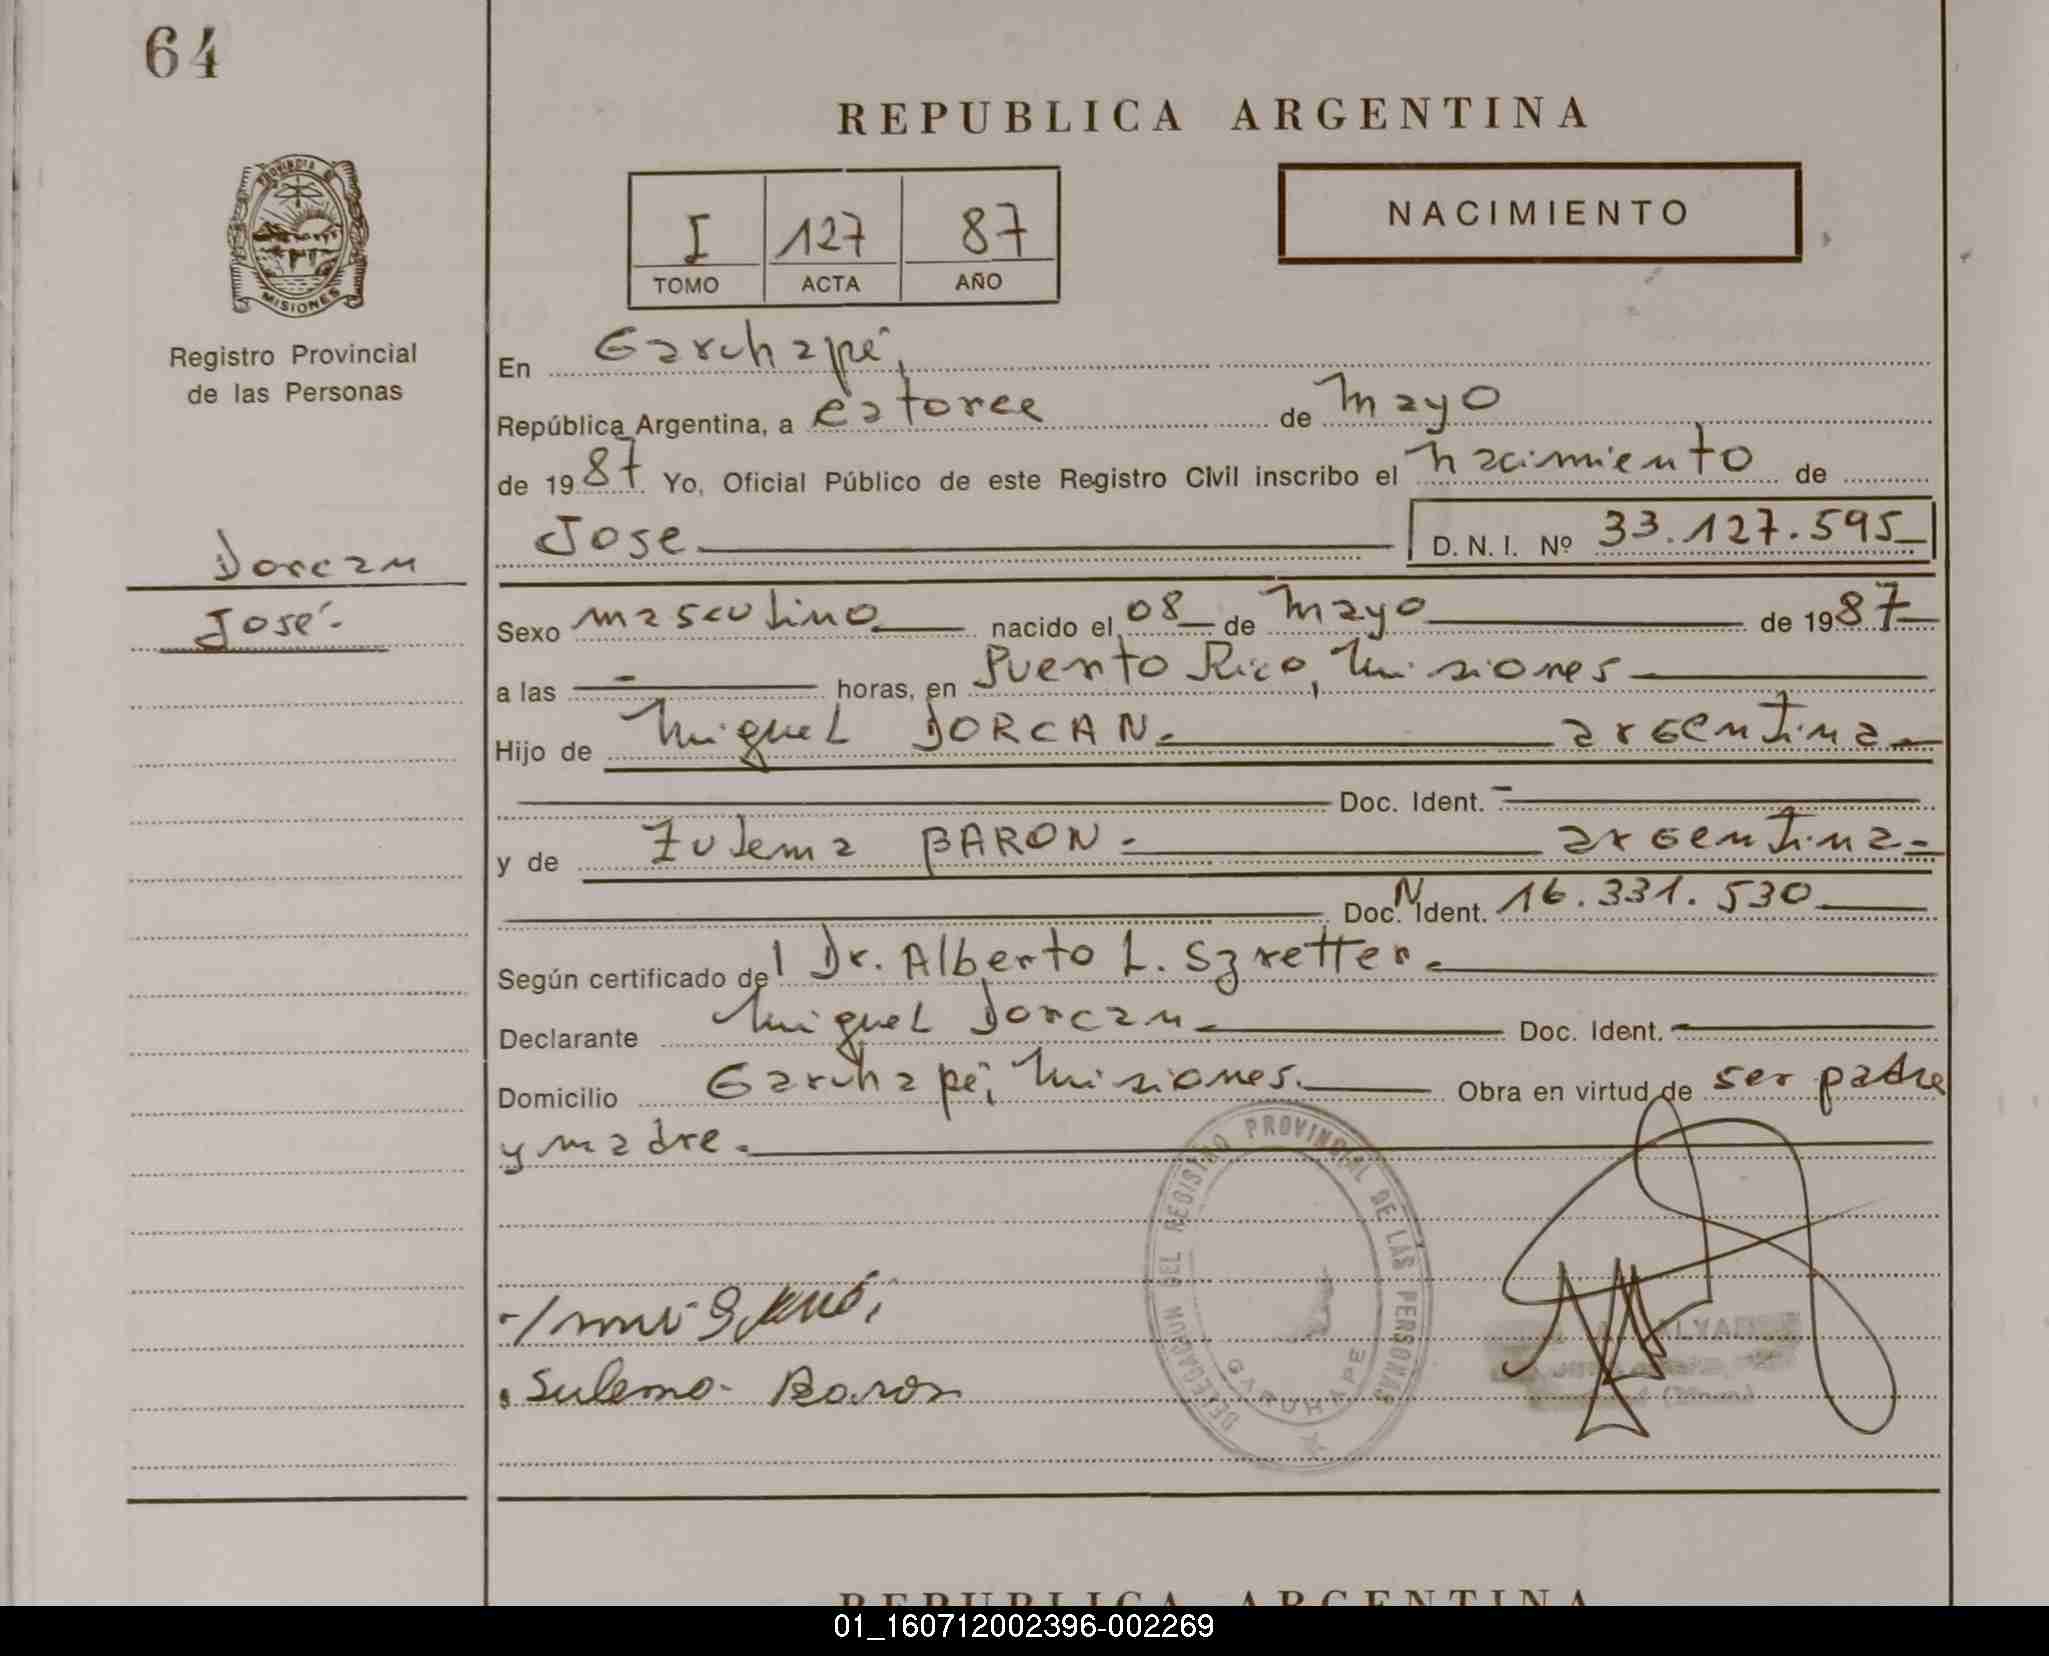 64
REPUBLICA ARGENTINA
NACIMIENTO
I 127 87
TOMO ACTA AÑO
PROVINCIA DE
MISIONES
Registro Provincial
de las Personas
En Garuhapé,
República Argentina, a catorce de mayo
de 1987 Yo, Oficial Público de este Registro Civil inscribo el nacimiento de
Jose D. N. I. Nº 33.127.595
Dorcan
José.
Sexo masculino nacido el 08 de mayo de 1987
a las - horas, en Puerto Rico, Misiones
Hijo de Miguel DORCAN. argentina
Doc. Ident. -
y de Zulema BARON. argentina.
Doc. N Ident. 16.331.530
Según certificado del Dr. Alberto L. Szretter.
Declarante Miguel Dorcan Doc. Ident.
Domicilio Garuhapé, Misiones. Obra en virtud de ser padre
y madre.
DELEGACION DEL REGISTRO PROVINCIAL DE LAS PERSONAS
GARUHAPE
Sulema Baron
REPUBLICA ARGENTINA
01_160712002396-002269